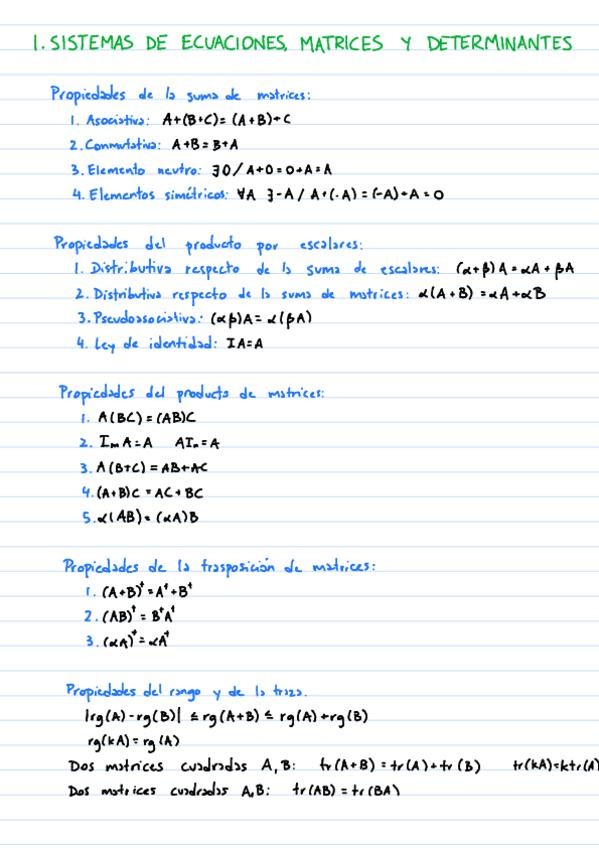 1. SISTEMAS DE ECUACIONES, MATRICES Y DETERMINANTES
Propiedades de la suma de matrices:
1. Asociativa: A+(B+C)=(A+B)+C
2. Conmutativa: A+B=B+A
3. Elemento neutro: ∃0/A+0=0+A=A
4. Elementos simétricos: ∀A ∃-A/A+(-A)=(-A)+A=0
Propiedades del producto por escalares:
1. Distributiva respecto de la suma de escalares: (α+β)A=αA+βA
2. Distributiva respecto de la suma de matrices: α(A+B)=αA+αB
3. Pseudoasociativa: (αβ)A=α(βA)
4. Ley de identidad: IA=A
Propiedades del producto de matrices:
1. A(BC)=(AB)C
2. IₘA=A AIₙ=A
3. A(B+C)=AB+AC
4. (A+B)C=AC+BC
5. α(AB)=(αA)B
Propiedades de la trasposición de matrices:
1. (A+B)ᵗ=Aᵗ+Bᵗ
2. (AB)ᵗ=BᵗAᵗ
3. (αA)ᵗ=αAᵗ
Propiedades del rango y de la traza.
|rg(A)-rg(B)| ≤ rg(A+B) ≤ rg(A)+rg(B)
rg(kA)=rg(A)
Dos matrices cuadradas A,B: tr(A+B)=tr(A)+tr(B) tr(kA)=ktr(A)
Dos matrices cuadradas A,B: tr(AB)=tr(BA)